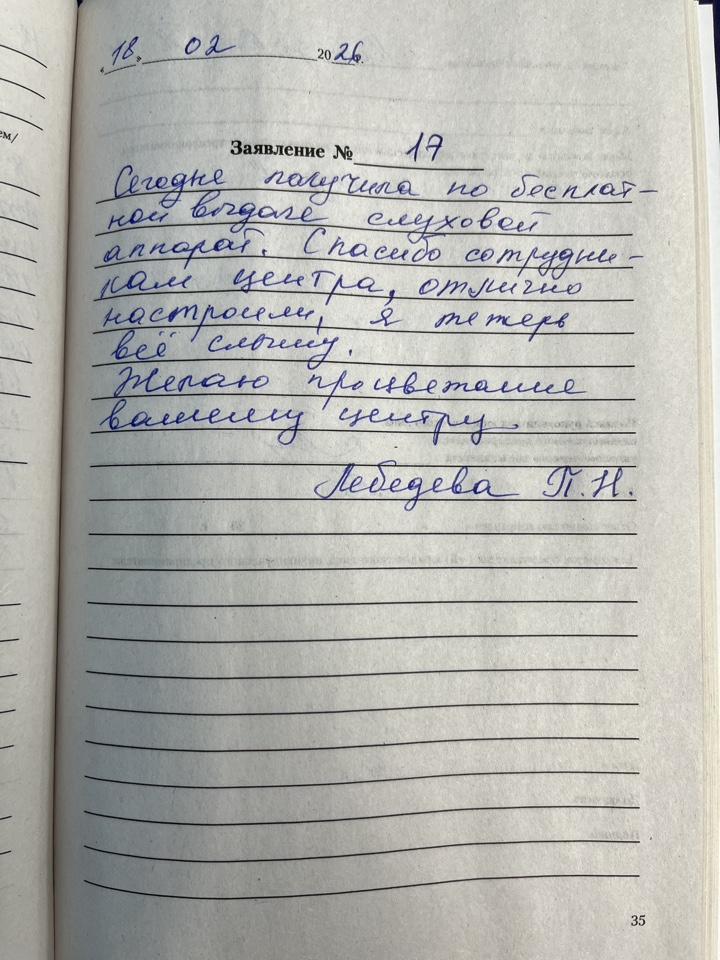 «18» 02 2026г.
Заявление № 17
Сегодне получила по бесплат-
ной выдаче слуховой
аппарат. Спасибо сотрудни-
кам центра, отлично
настроили, я теперь
всё слышу.
Желаю процветание
вашему центру.
Лебедева П.Н.
35
ем/